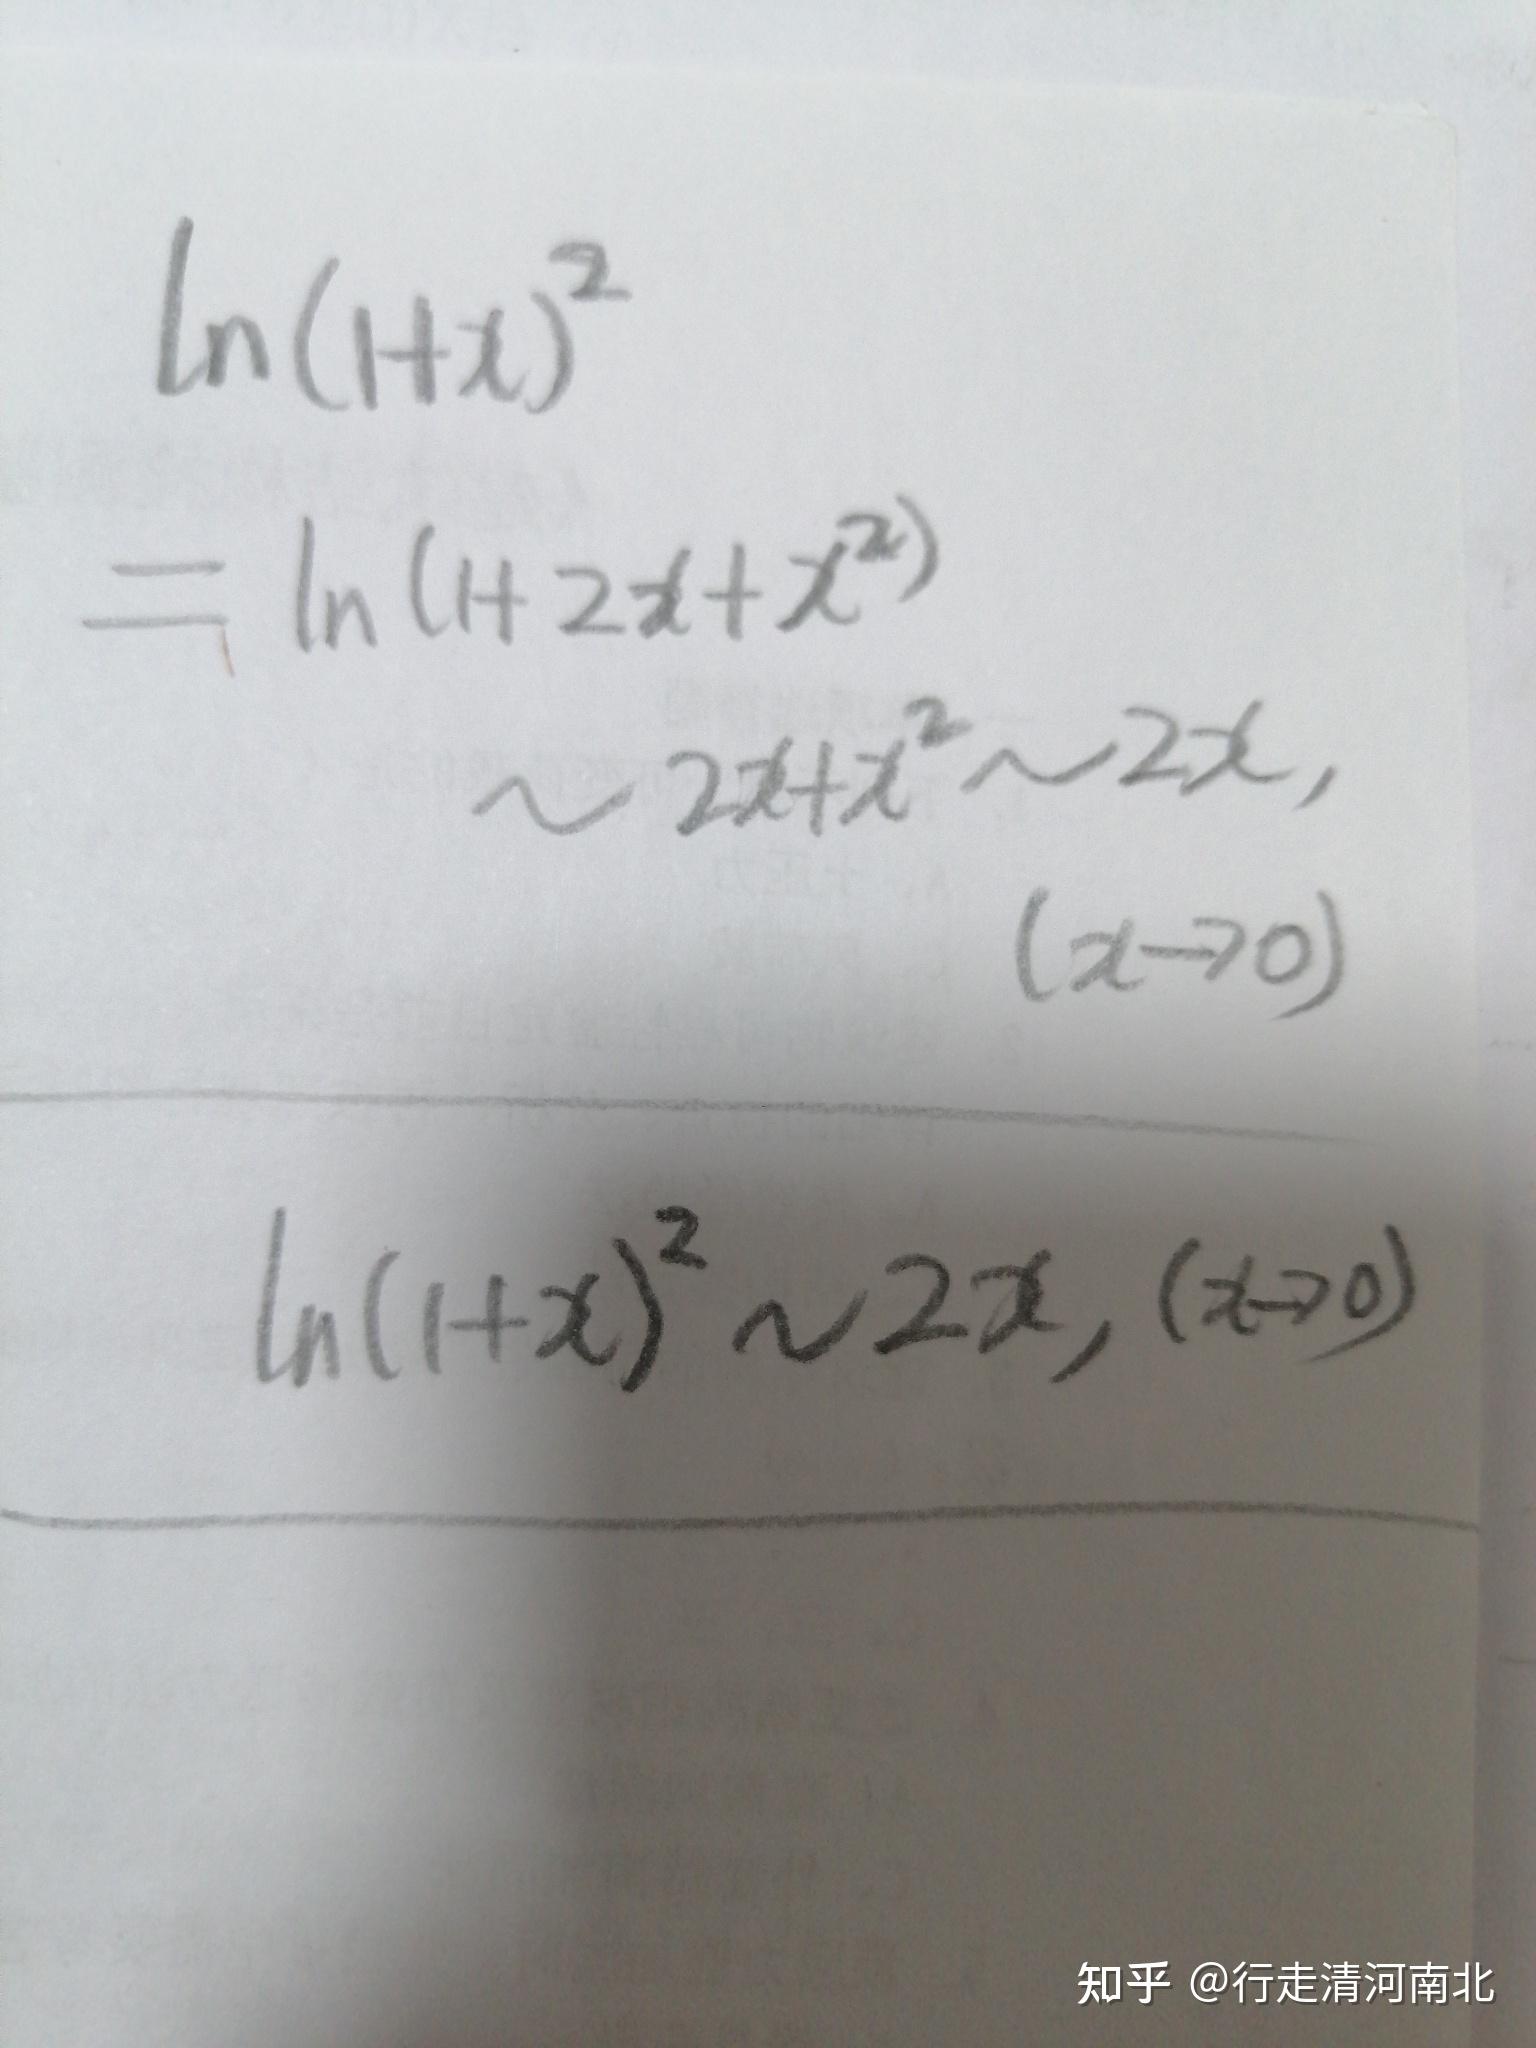 ln(1+x)²
= ln(1+2x+x²)
~ 2x+x² ~ 2x,
(x→0)
ln(1+x)² ~ 2x, (x→0)
知乎 @行走清河南北